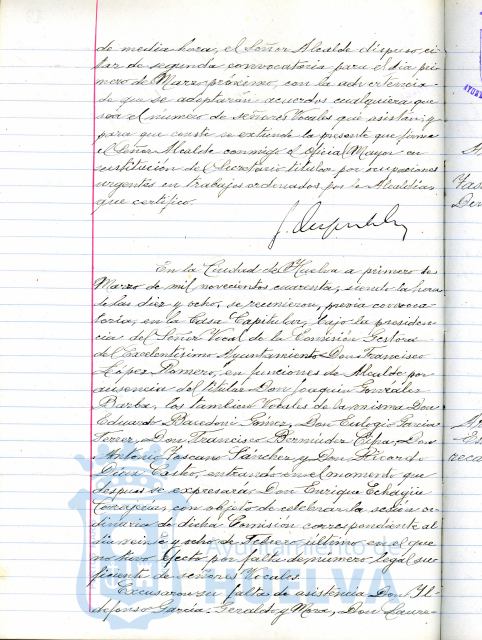 de media hora, el Señor Alcalde dispuso, ci-
tar de segunda convocatoria para el día pri-
mero de Marzo próximo, con la advertencia
de que se adoptarán acuerdos cualquiera que
sea el número de señores Vocales que asistan; y
para que conste se extiende la presente que firma
el Señor Alcalde conmigo el Oficial Mayor en
sustitución de Secretario titular por ocupaciones
urgentes en trabajos ordenados por la Alcaldía,
que certifico.
En la Ciudad de Huelva a primero de
Marzo de mil novecientos cuarenta, siendo la hora
de las diez y ocho, se reunieron, previa convoca-
toria, en la Casa Capitular, bajo la presiden-
cia del Señor Vocal de la Comisión Gestora
del Excelentísimo Ayuntamiento Don Francisco
López Romero, en funciones de Alcalde por
ausencia del titular Don Joaquín González
Barba, los también Vocales de la misma Don
Eduardo Gómez, Don Eulogio García
Don Francisco Bermúdez Don
Antonio Toscano Sánchez y Don Ricardo
Díaz Castro, entrando en el momento que
después se expresará Don Enrique Echajui
Concepción, con objeto de celebrar la sesión or-
dinaria de dicha Comisión correspondiente al
día veinte y ocho de Febrero último, en el que
no tuvo efecto por falta de número legal su-
ficiente de señores Vocales.
Excusaron su falta de asistencia Don Il-
defonso García Geraldt y Mora, Don Laure-
Ayuntamiento de
HUELVA